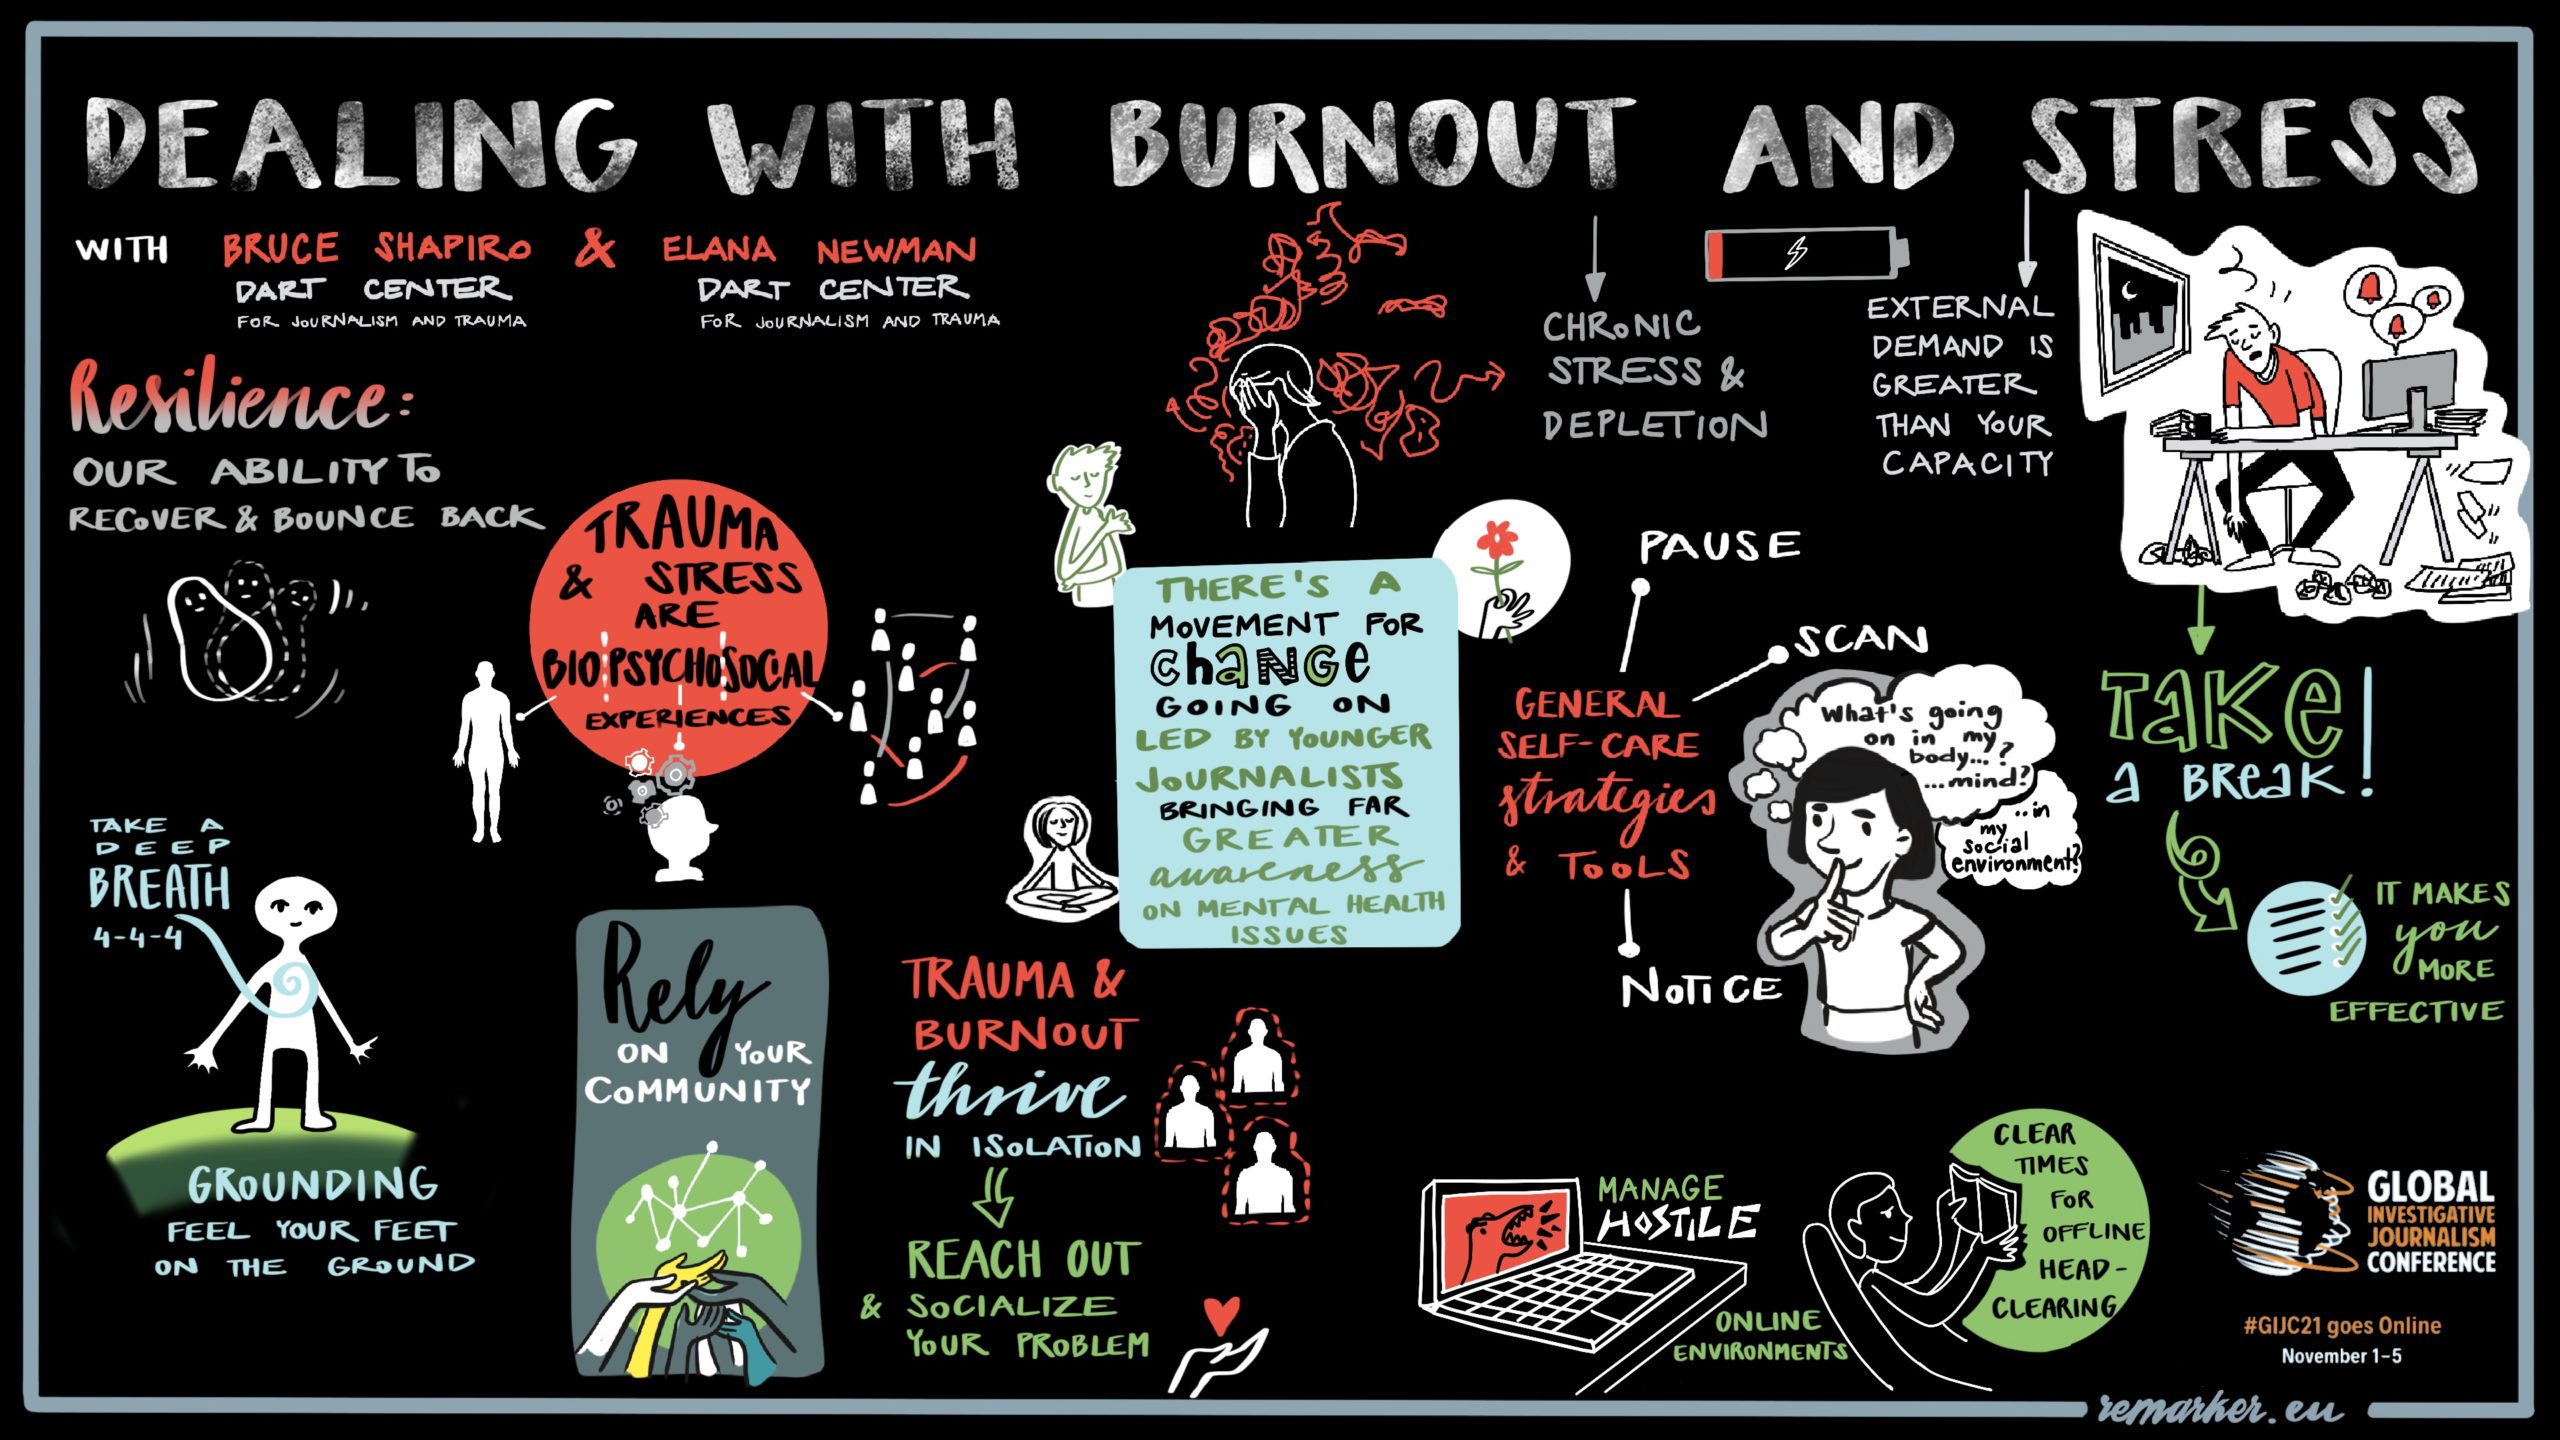 DEALING WITH BURNOUT AND STRESS
WITH BRUCE SHAPIRO & ELANA NEWMAN
DART CENTER
FOR JOURNALISM AND TRAUMA
DART CENTER
FOR JOURNALISM AND TRAUMA
Resilience:
OUR ABILITY TO
RECOVER & BOUNCE BACK
TRAUMA
& STRESS
ARE
BIOPSYCHOSOCIAL
EXPERIENCES
TAKE A
DEEP
BREATH
4-4-4
GROUNDING
FEEL YOUR FEET
ON THE GROUND
Rely
ON YOUR
COMMUNITY
TRAUMA &
BURNOUT
thrive
IN ISOLATION
REACH OUT
& SOCIALIZE
YOUR PROBLEM
THERE'S A
MOVEMENT FOR
CHANGE
GOING ON
LED BY YOUNGER
JOURNALISTS
BRINGING FAR
GREATER
awareness
ON MENTAL HEALTH
ISSUES
CHRONIC
STRESS &
DEPLETION
EXTERNAL
DEMAND IS
GREATER
THAN YOUR
CAPACITY
PAUSE
SCAN
GENERAL
SELF-CARE
strategies
& TOOLS
NOTICE
What's going
on in my
body...?
...mind?
...in
my
social
environment?
TAKE
a BREAK!
IT MAKES
you
MORE
EFFECTIVE
MANAGE
HOSTILE
ONLINE
ENVIRONMENTS
CLEAR
TIMES
FOR
OFFLINE
HEAD-
CLEARING
GLOBAL
INVESTIGATIVE
JOURNALISM
CONFERENCE
#GIJC21 goes Online
November 1–5
remarker.eu